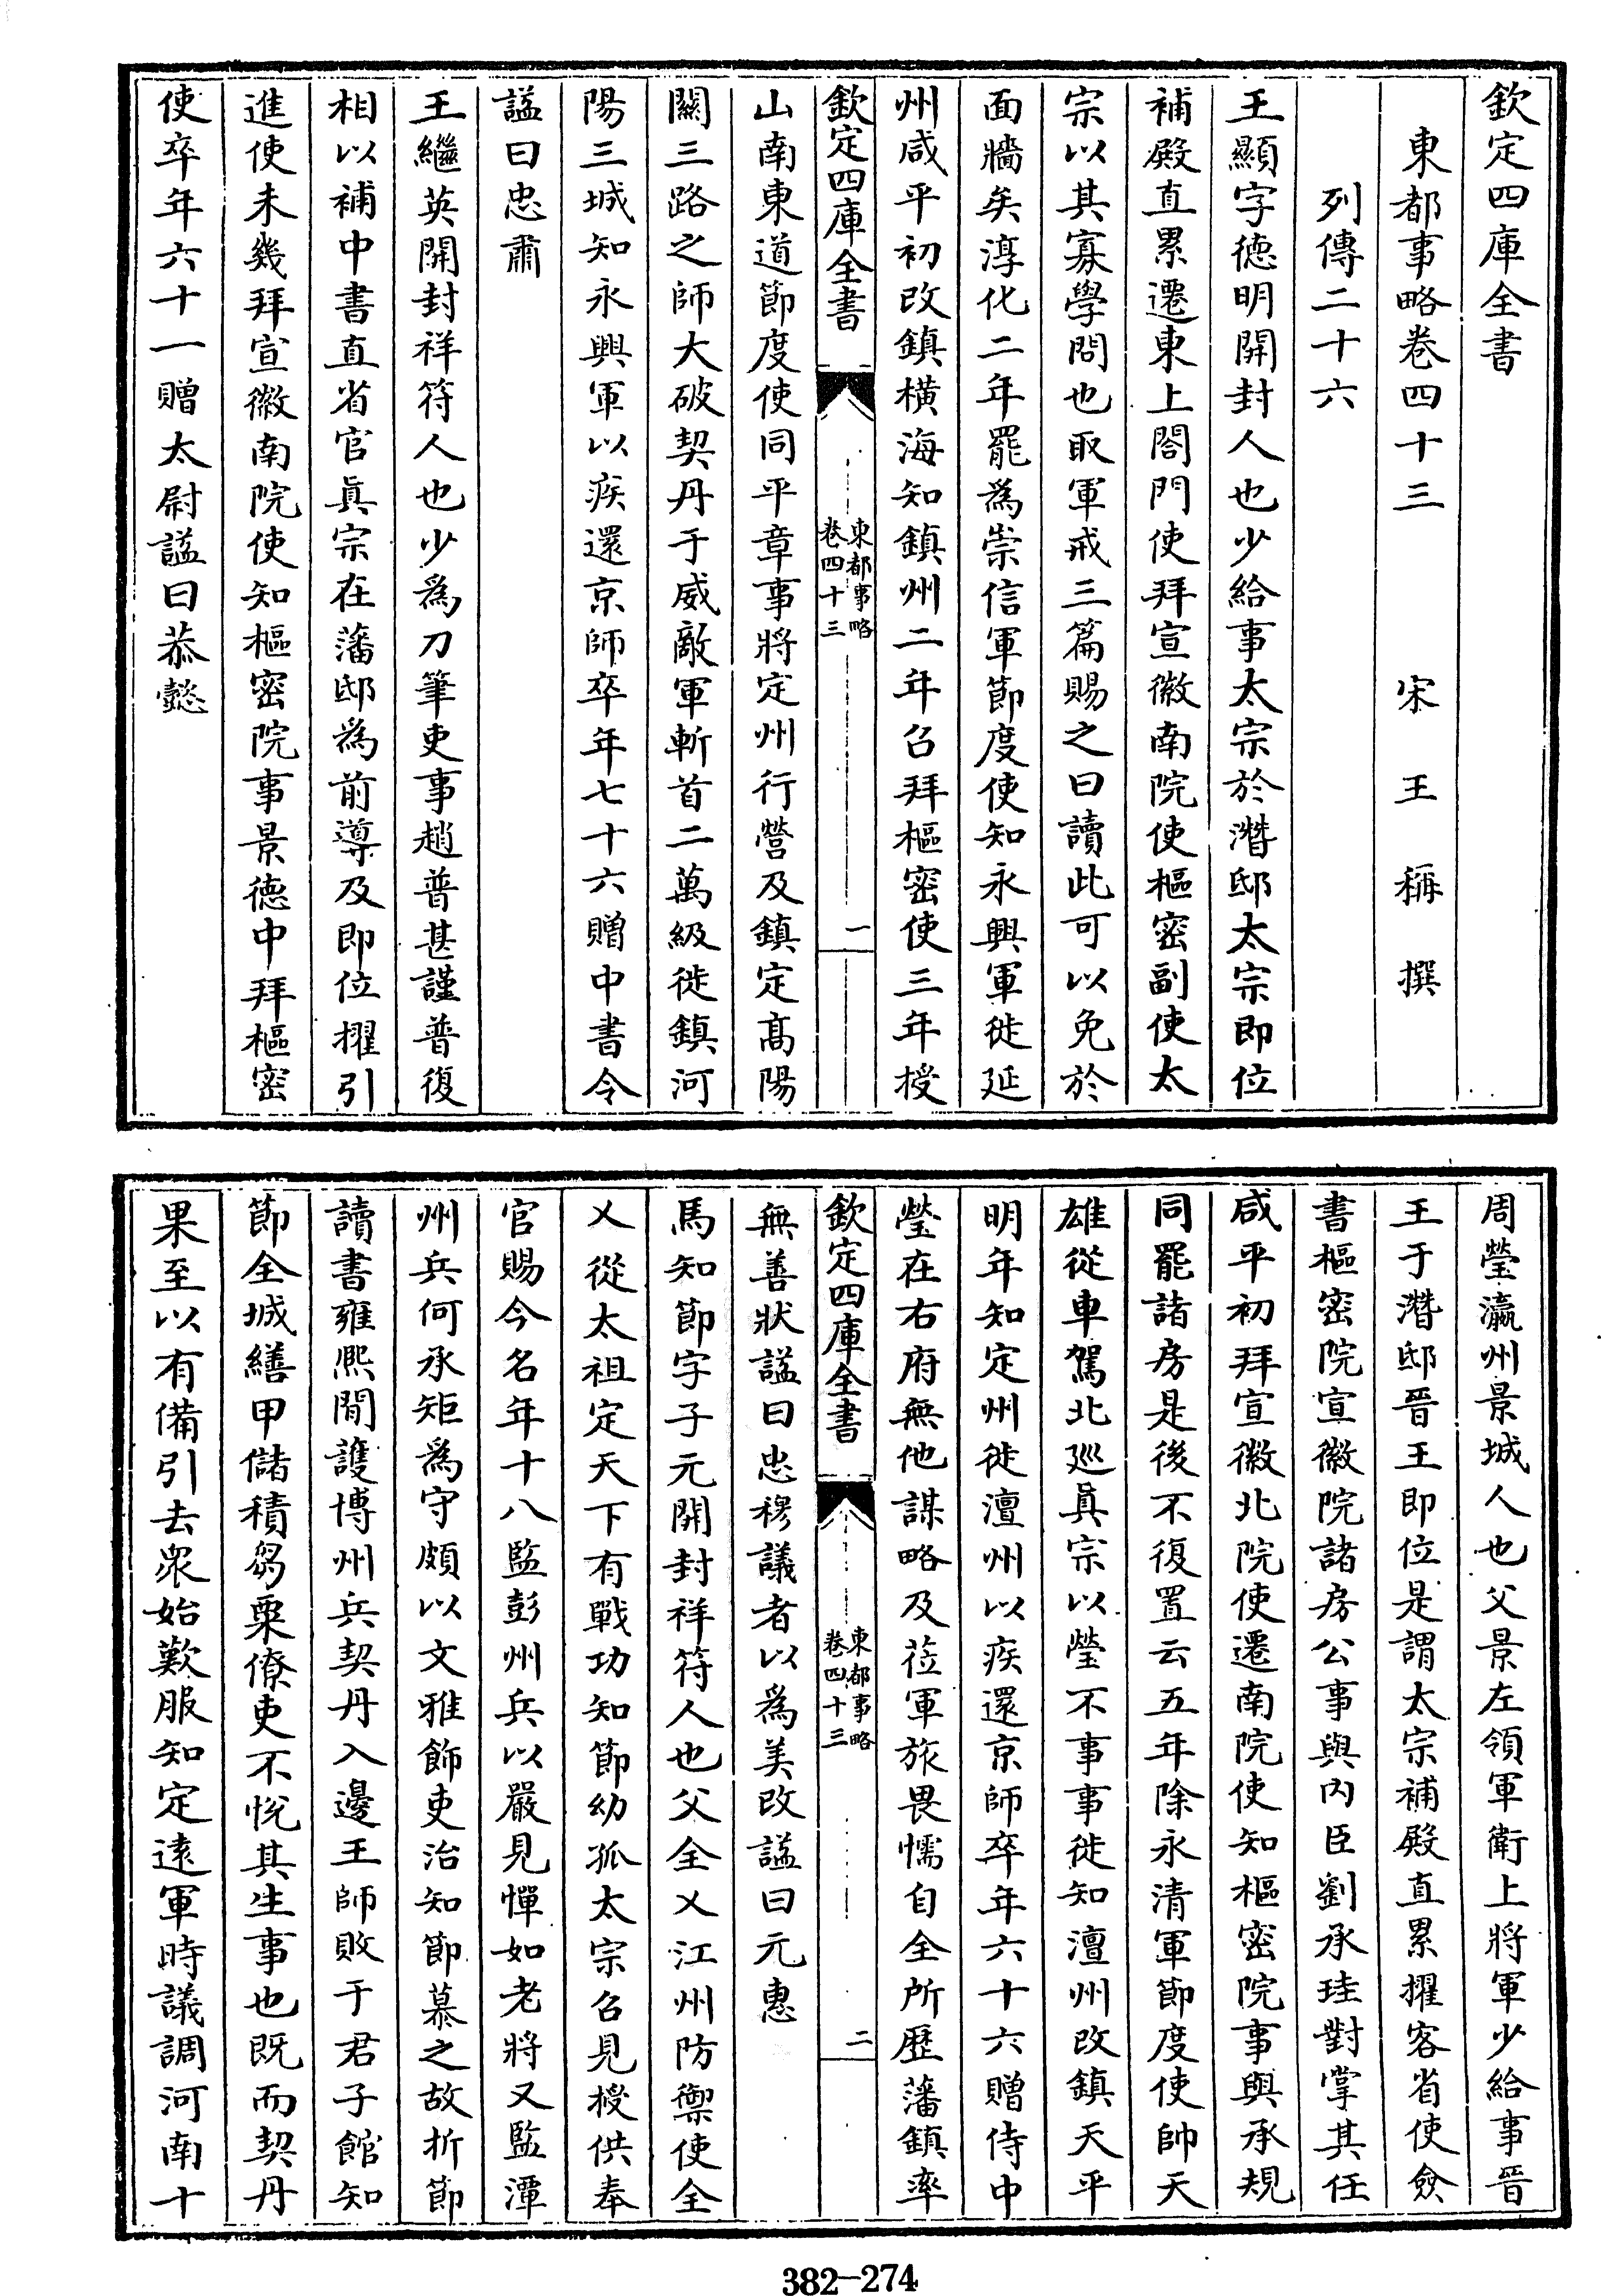 欽定四庫全書
東都事略卷四十三
宋王稱撰
列傳二十六
王顯字德明開封人也少給事太宗於潛邸太宗即位
補殿直累遷東上閤門使拜宣徽南院使樞密副使太
宗以其寡學問也取軍戒三篇賜之曰讀此可以免於
面牆矣淳化二年罷為崇信軍節度使知永興軍徙延
州咸平初改鎮橫海知鎮州二年召拜樞密使三年授
欽定四庫全書
東都事略
卷四十三
一
山南東道節度使同平章事將定州行營及鎮定髙陽
關三路之師大破契丹于威敵軍斬首二萬級徙鎮河
陽三城知永興軍以疾還京師卒年七十六贈中書令
謚曰忠肅
王繼英開封祥符人也少為刀筆吏事趙普甚謹普復
相以補中書直省官真宗在藩邸為前導及即位擢引
進使未幾拜宣徽南院使知樞密院事景德中拜樞密
使卒年六十一贈太尉謚曰恭懿
周瑩瀛州景城人也父景左領軍衛上將軍少給事晉
王于潛邸晉王即位是謂太宗補殿直累擢客省使僉
書樞密院宣徽院諸房公事與內臣劉承珪對掌其任
咸平初拜宣徽北院使遷南院使知樞密院事與承規
同罷諸房是後不復置云五年除永清軍節度使帥天
雄從車駕北廵真宗以瑩不事事徙知澶州改鎮天平
明年知定州徙澶州以疾還京師卒年六十六贈侍中
瑩在右府無他謀略及莅軍旅畏懦自全所歴藩鎮率
欽定四庫全書
東都事略
卷四十三
二
無善狀謚曰忠穆議者以為美改謚曰元惠
馬知節字子元開封祥符人也父全乂江州防禦使全
乂從太祖定天下有戰功知節幼孤太宗召見授供奉
官賜今名年十八監彭州兵以嚴見憚如老將又監潭
州兵何承矩為守頗以文雅飾吏治知節慕之故折節
讀書雍熙閒護博州兵契丹入邊王師敗于君子館知
節全城繕甲儲積芻粟僚吏不悅其生事也既而契丹
果至以有備引去衆始歎服知定遠軍時議調河南十
382-274